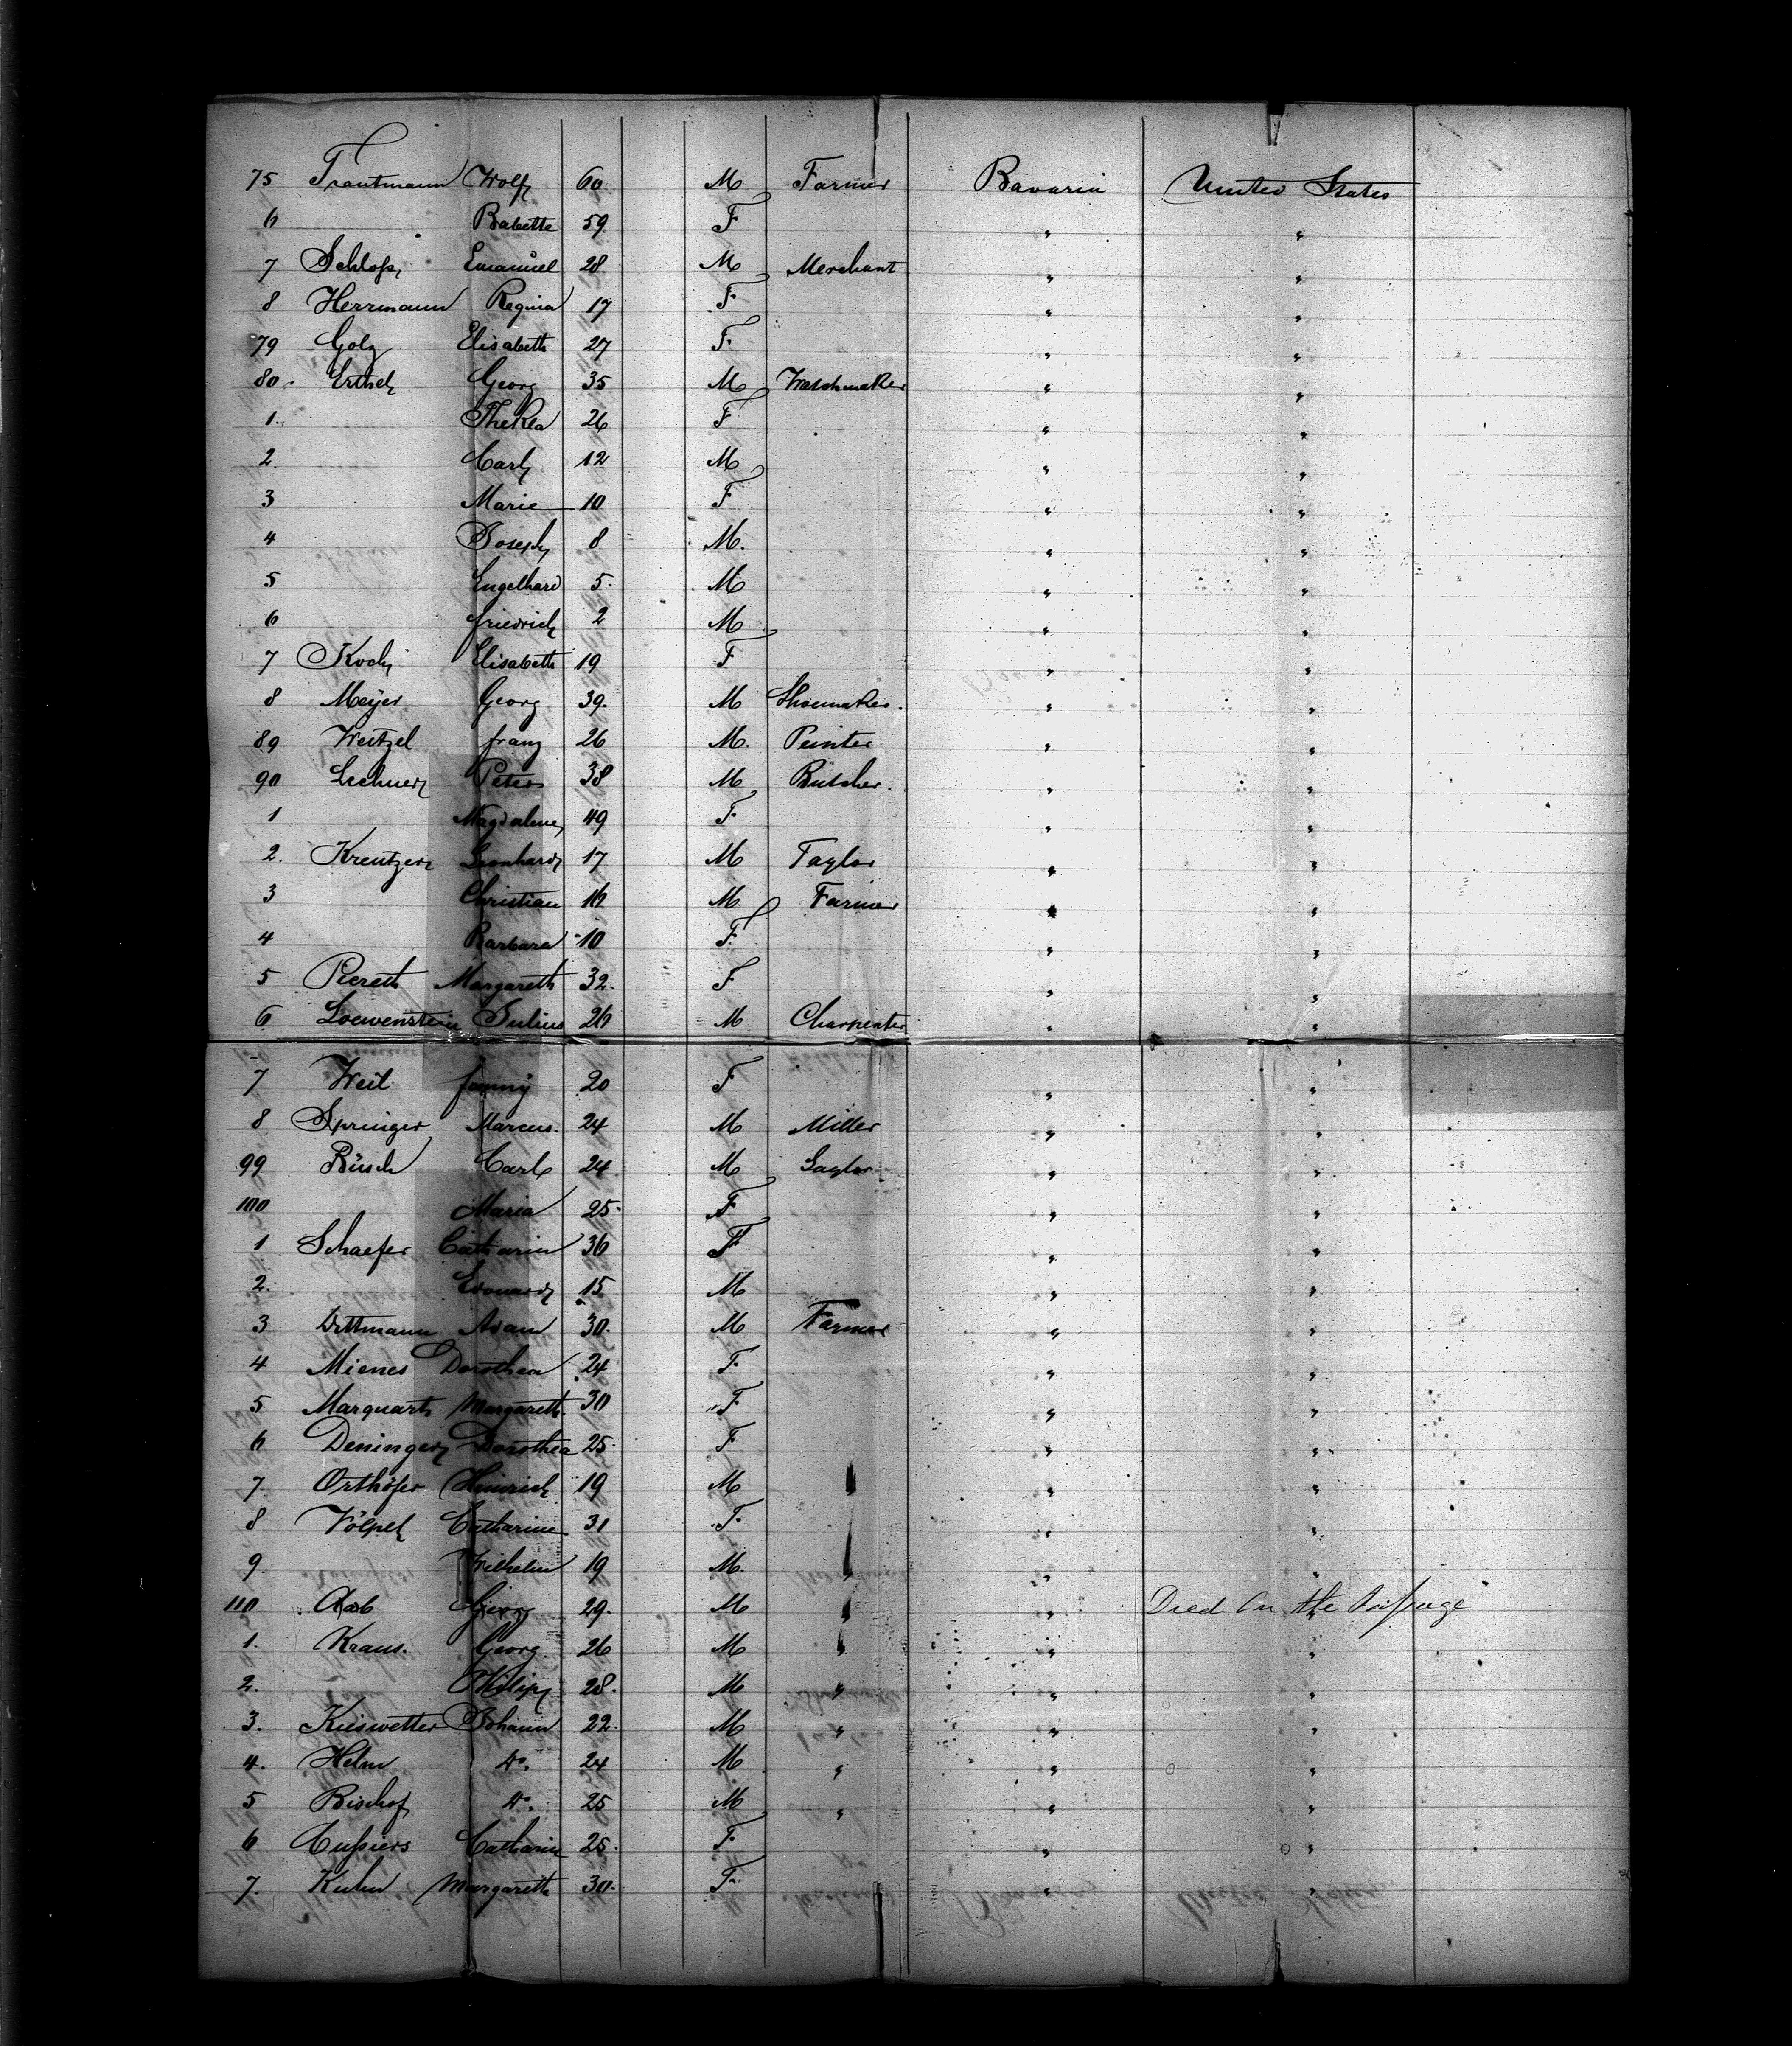 75 Trautmann Wolf 60 M Farmer Bavaria United States
6 Babette 59 F " "
7 Schloß Emanuel 28 M Merchant " "
8 Herrmann Regina 17 F " "
79 Golz Elisabeth 27 F " "
80 Erthel Georg 35 M Watchmaker " "
1 Thekla 26 F " "
2 Carl 12 M " "
3 Marie 10 F " "
4 Joseph 8 M. " "
5 Engelhard 5 M " "
6 friedrich 2 M " "
7 Koch Elisabeth 19 F " "
8 Meÿer Georg 39. M Shoemaker. " "
89 Weitzel franz 26 M. Peinter " "
90 Lechner Peter 38 M Butcher. " "
1 Magdalene 49 F " "
2. Kreutzer Leonhard 17 M Taylor " "
3 Christian 16 M Farmer " "
4 Barbara 10 F. " "
5 Piereth Margareth 32. F " "
6 Loewenstein Julius 26 M Charpenter " "
7 Weil fannÿ 20 F " "
8 Springer Marcus. 24 M Miller " "
99 Büsch Carl 24 M Taylor " "
100 Maria 25 F " "
1 Schaefer Catharin 36 F " "
2. Edouard 15. M " "
3 Dittmann Adam 30. M Farmer " "
4 Mienes Dorothea 24 F " "
5 Marquart Margareth. 30 F " "
6 Deninger Dorothea 25 F " "
7 Orthöfer Heinrich 19 M " " "
8 Völpel Catharine 31 F " "
9 Wilhelm 19 M. " " "
110 Aab Georg 29. M " " Died On the Passage
1. Kraus. Georg 26 M " " "
2. Philipp 28. M " " "
3. Kieswetter Johann 22. M " " "
4. Helm do. 24 M " " "
5 Bischof do. 25 M " " "
6 Cußiers Catharin 25. F " "
7. Kuhn Margareth 30. F " "